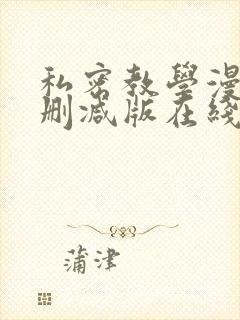 私密教學漫
刪减版在綫
蒲津